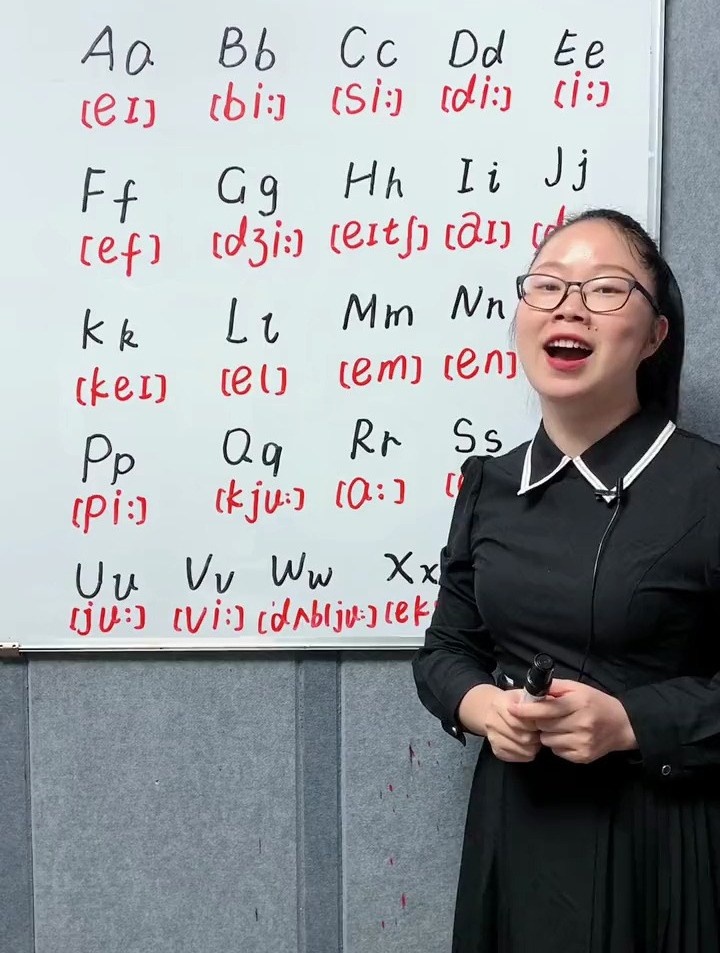 Aa Bb Cc Dd Ee
[eɪ] [bi:] [si:] [di:] [i:]
Ff Gg Hh Ii Jj
[ef] [dʒi:] [eɪtʃ] [aɪ]
Kk Ll Mm Nn
[keɪ] [el] [em] [en]
Pp Qq Rr Ss
[pi:] [kju:] [ɑ:]
Uu Vv Ww Xx
[ju:] [vi:] [dʌblju:] [ek